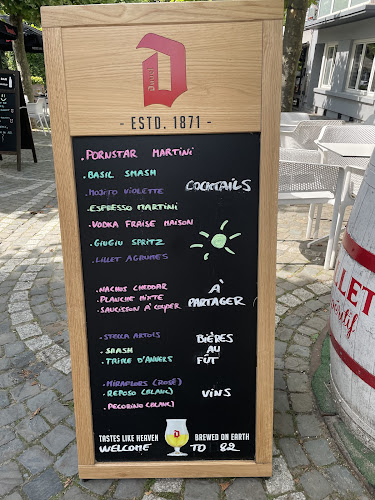 Duvel
- ESTD. 1871 -
.PORNSTAR MARTINI
.BASIL SMASH
.MOJITO VIOLETTE
COCKTAILS
.ESPRESSO MARTINI
.VODKA FRAISE MAISON
.GIUGIU SPRITZ
.LILLET AGRUMES
.NACHOS CHEDDAR
.PLANCHE MIXTE
.SAUCISSON À COUPER
À
PARTAGER
.STELLA ARTOIS
.SMASH
.TRIPLE D'ANVERS
BIÈRES
AU
FÛT
.MIRAFLORS (ROSÉ)
.REPOSO (BLANC)
.PECORINO (BLANC)
VINS
TASTES LIKE HEAVEN BREWED ON EARTH
WELCOME TO 22
LLET